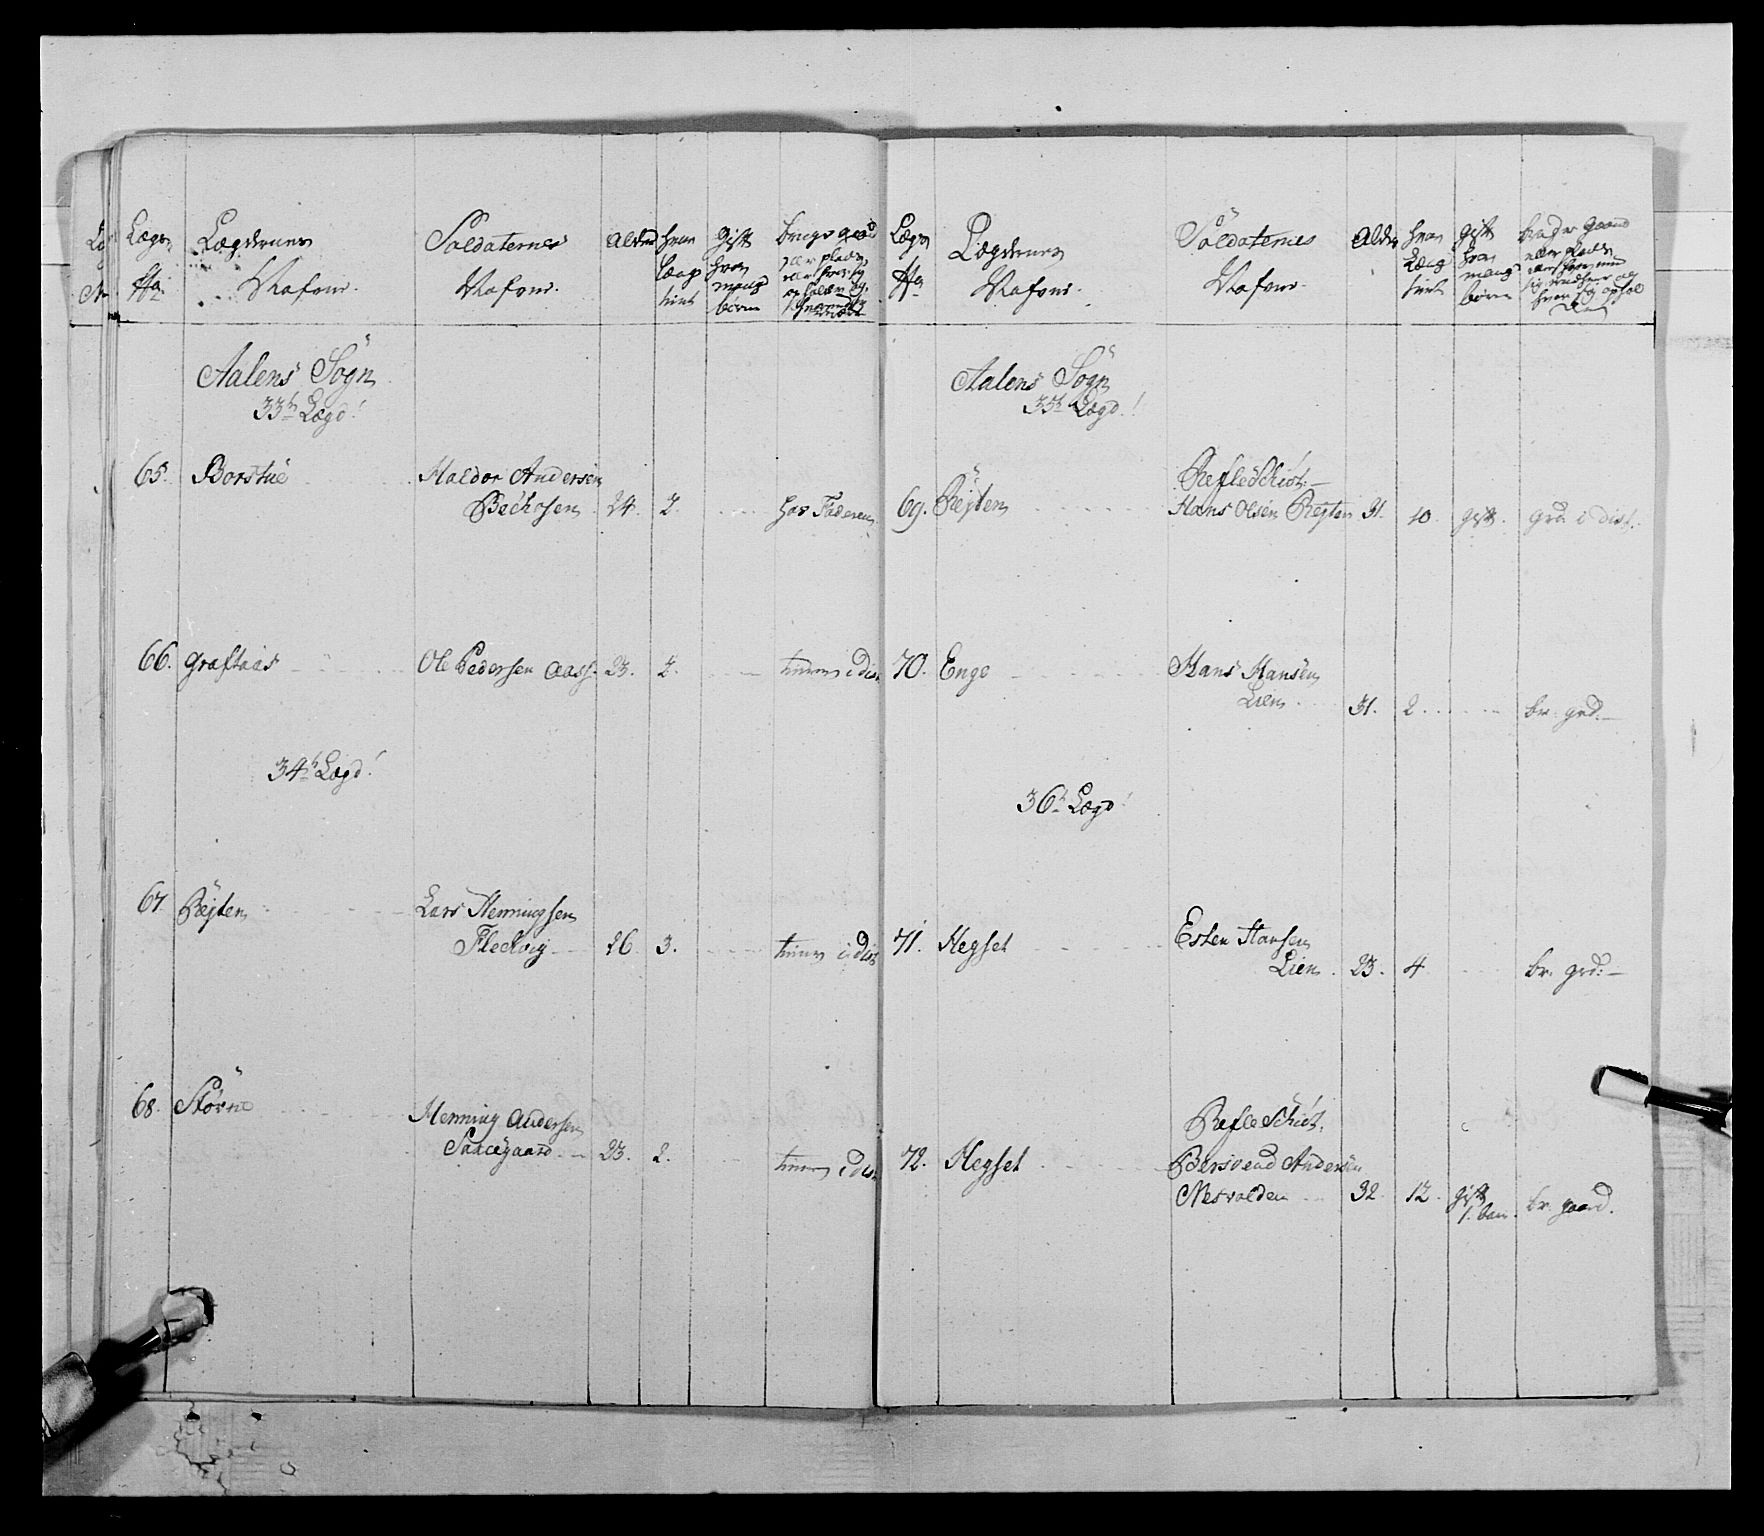 Lægs No Lægdernes Nafne. Soldaternes Nafne. Alder hvor længe tient gift hvor mange børn
Aalens Sogn
33te Lægd!
65. Borstue Haldor Andersen
Bechosen 24. 2. hos Faderen
66. Graftaas Ole Pedersen Aass. 23. 2. tiener i dist
34te Lægd!
67 Røjten Lars Henningsen
Fleckvig 26 3. tiener i dist
68. Størne Henning Andersen
Saacegaard 23. 2. tiener i dist
Lægs No Lægdernes Nafne. Soldaternes Nafne. Alder hvor længe tient gift hvor mange børn
Aalens Sogn
35te Lægd!
Refle Schüt:
69. Røjten Hans Olsen Røjten 31. 10. gift. grd i dist.
70. Enge Hans Hansen
Lien 31. 2. br. grd.
36te Lægd!
71. Hegset Esten Hansen
Lien 23. 4 br. grd:
Refle Schüt.
72. Hegset Bersvend Andersen
Nesvolden 32 12. gift 1. barn. br. gaard.